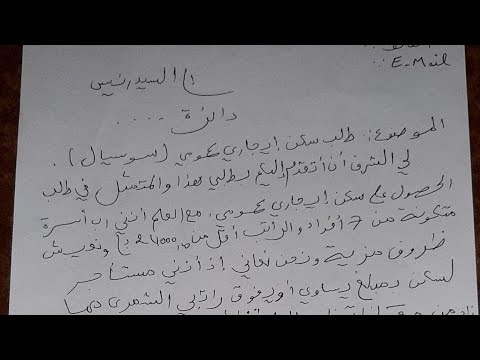 E-Mail
السيد رئيس
دائرة ....
الموضوع: طلب سكن إيجاري عمومي (سوسيال).
لي الشرف أن أتقدم إليكم بطلبي هذا والمتمثل في طلب
الحصول على سكن إيجاري عمومي، مع العلم أنني رب أسرة
متكونة من 7 أفراد والراتب أقل من 24000 دج ونعيش
ظروف مزرية ونحن نعاني إذ أنني مستأجر
لسكن بمبلغ يساوي أو يفوق راتبي الشهري